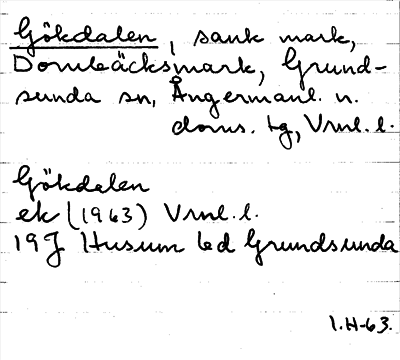 Gökdalen, sank mark,
Dombäcksmark, Grund-
sunda sn, Ångermanl. n.
doms. tg, Vrnl. l.
Gökdalen
ek (1963) Vrnl. l.
19J Husum bd Grundsunda
I.H-63.